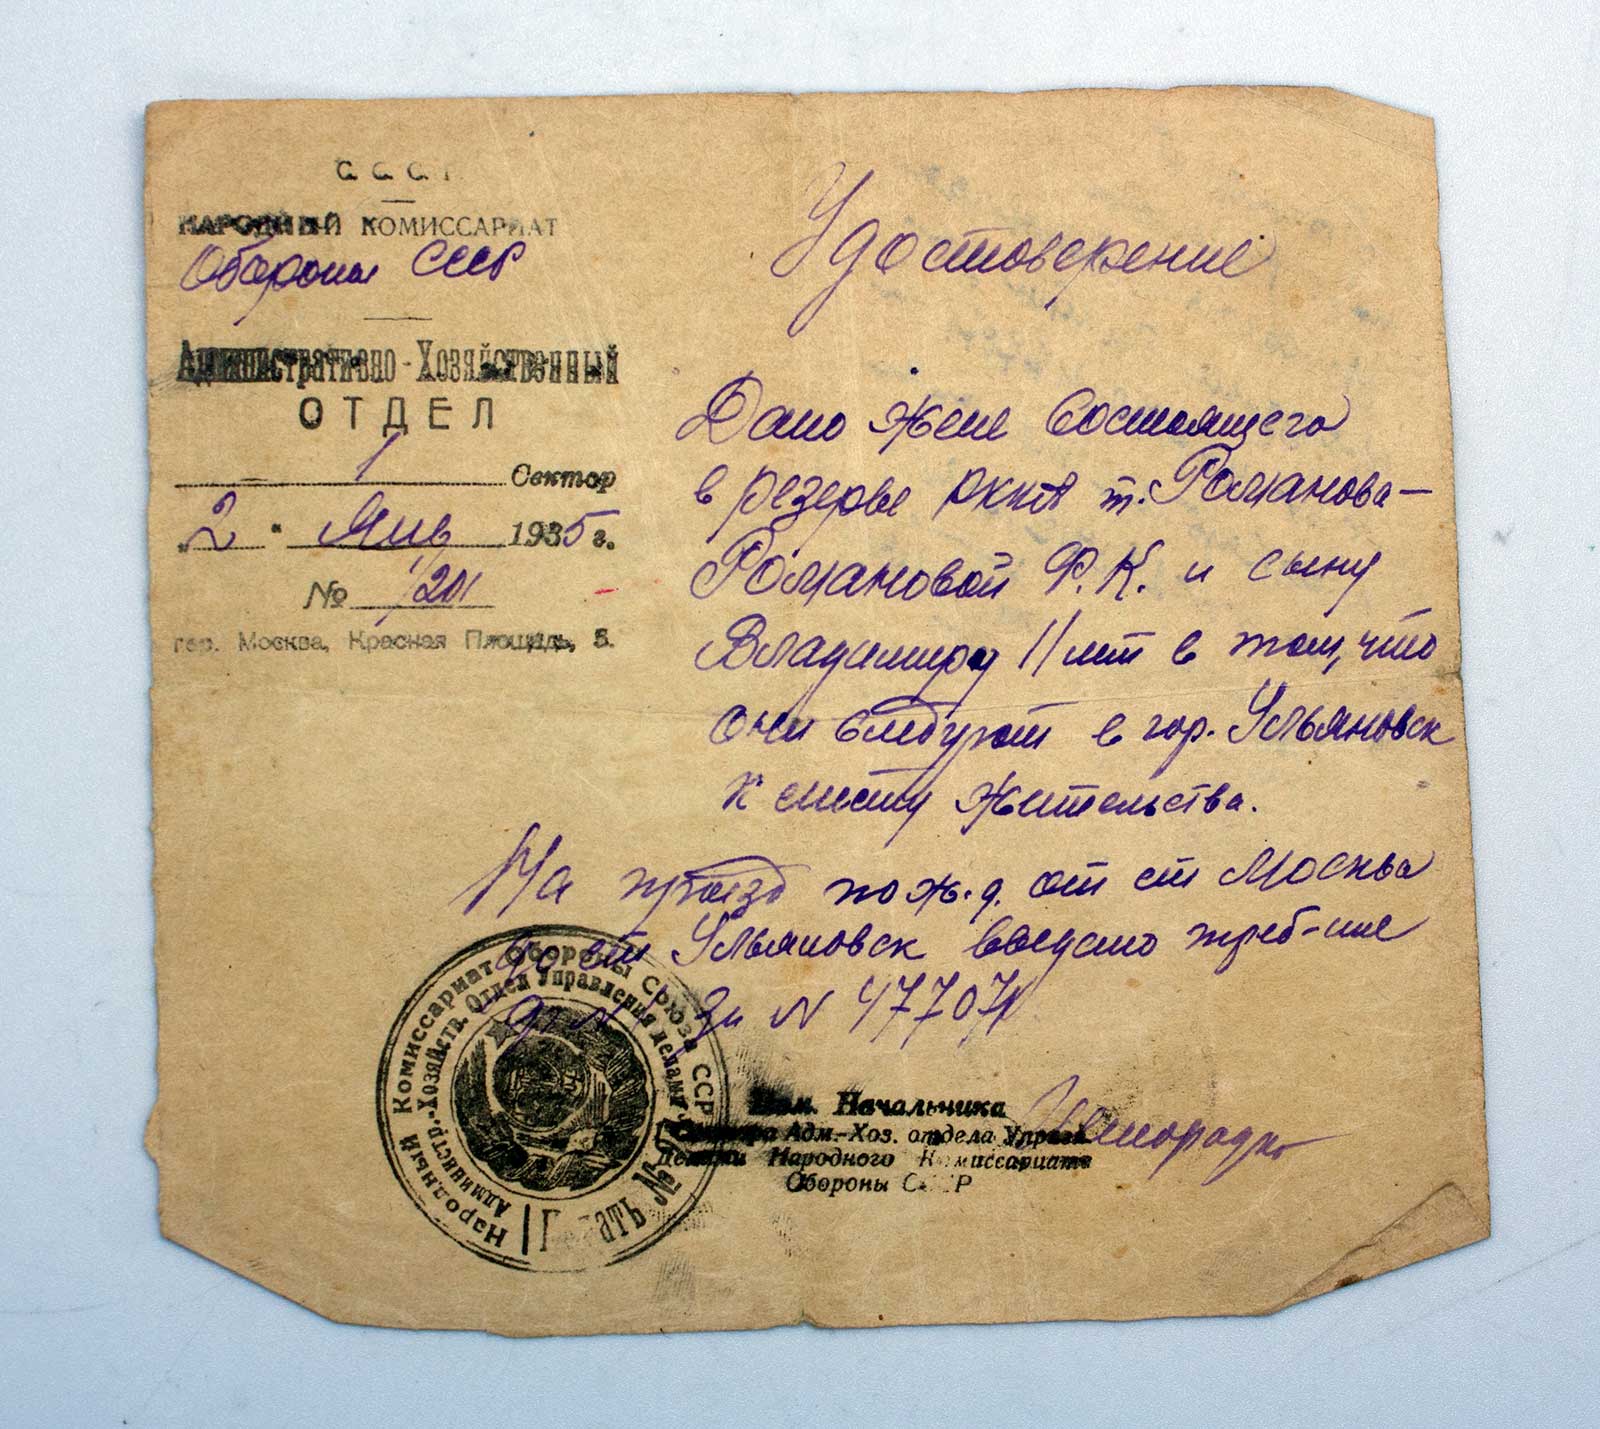 С С С Р
НАРОДНЫЙ КОМИССАРИАТ
Обороны СССР
Административно-Хозяйственный
ОТДЕЛ
1 Сектор
„2“ Янв 1935 г.
№ 1/201
гор. Москва, Красная Площадь, 5.
Удостоверение
Дано жене состоящего
в резерве РККА т. Романова-
Романовой Ф.К. и сыну
Владимиру 11 лет в том, что
они следуют в гор. Ульяновск
к месту жительства.
На проезд по ж.д. от ст Москва
до ст Ульяновск выдано треб-ние
за N 47707
Народный Комиссариат Обороны Союза ССР
Администр.-Хозяйств. Отдел Управления делами
Печать №
Пом. Начальника
Сектора Адм.-Хоз. отдела Управл.
Делами Народного Комиссариата
Обороны СССР